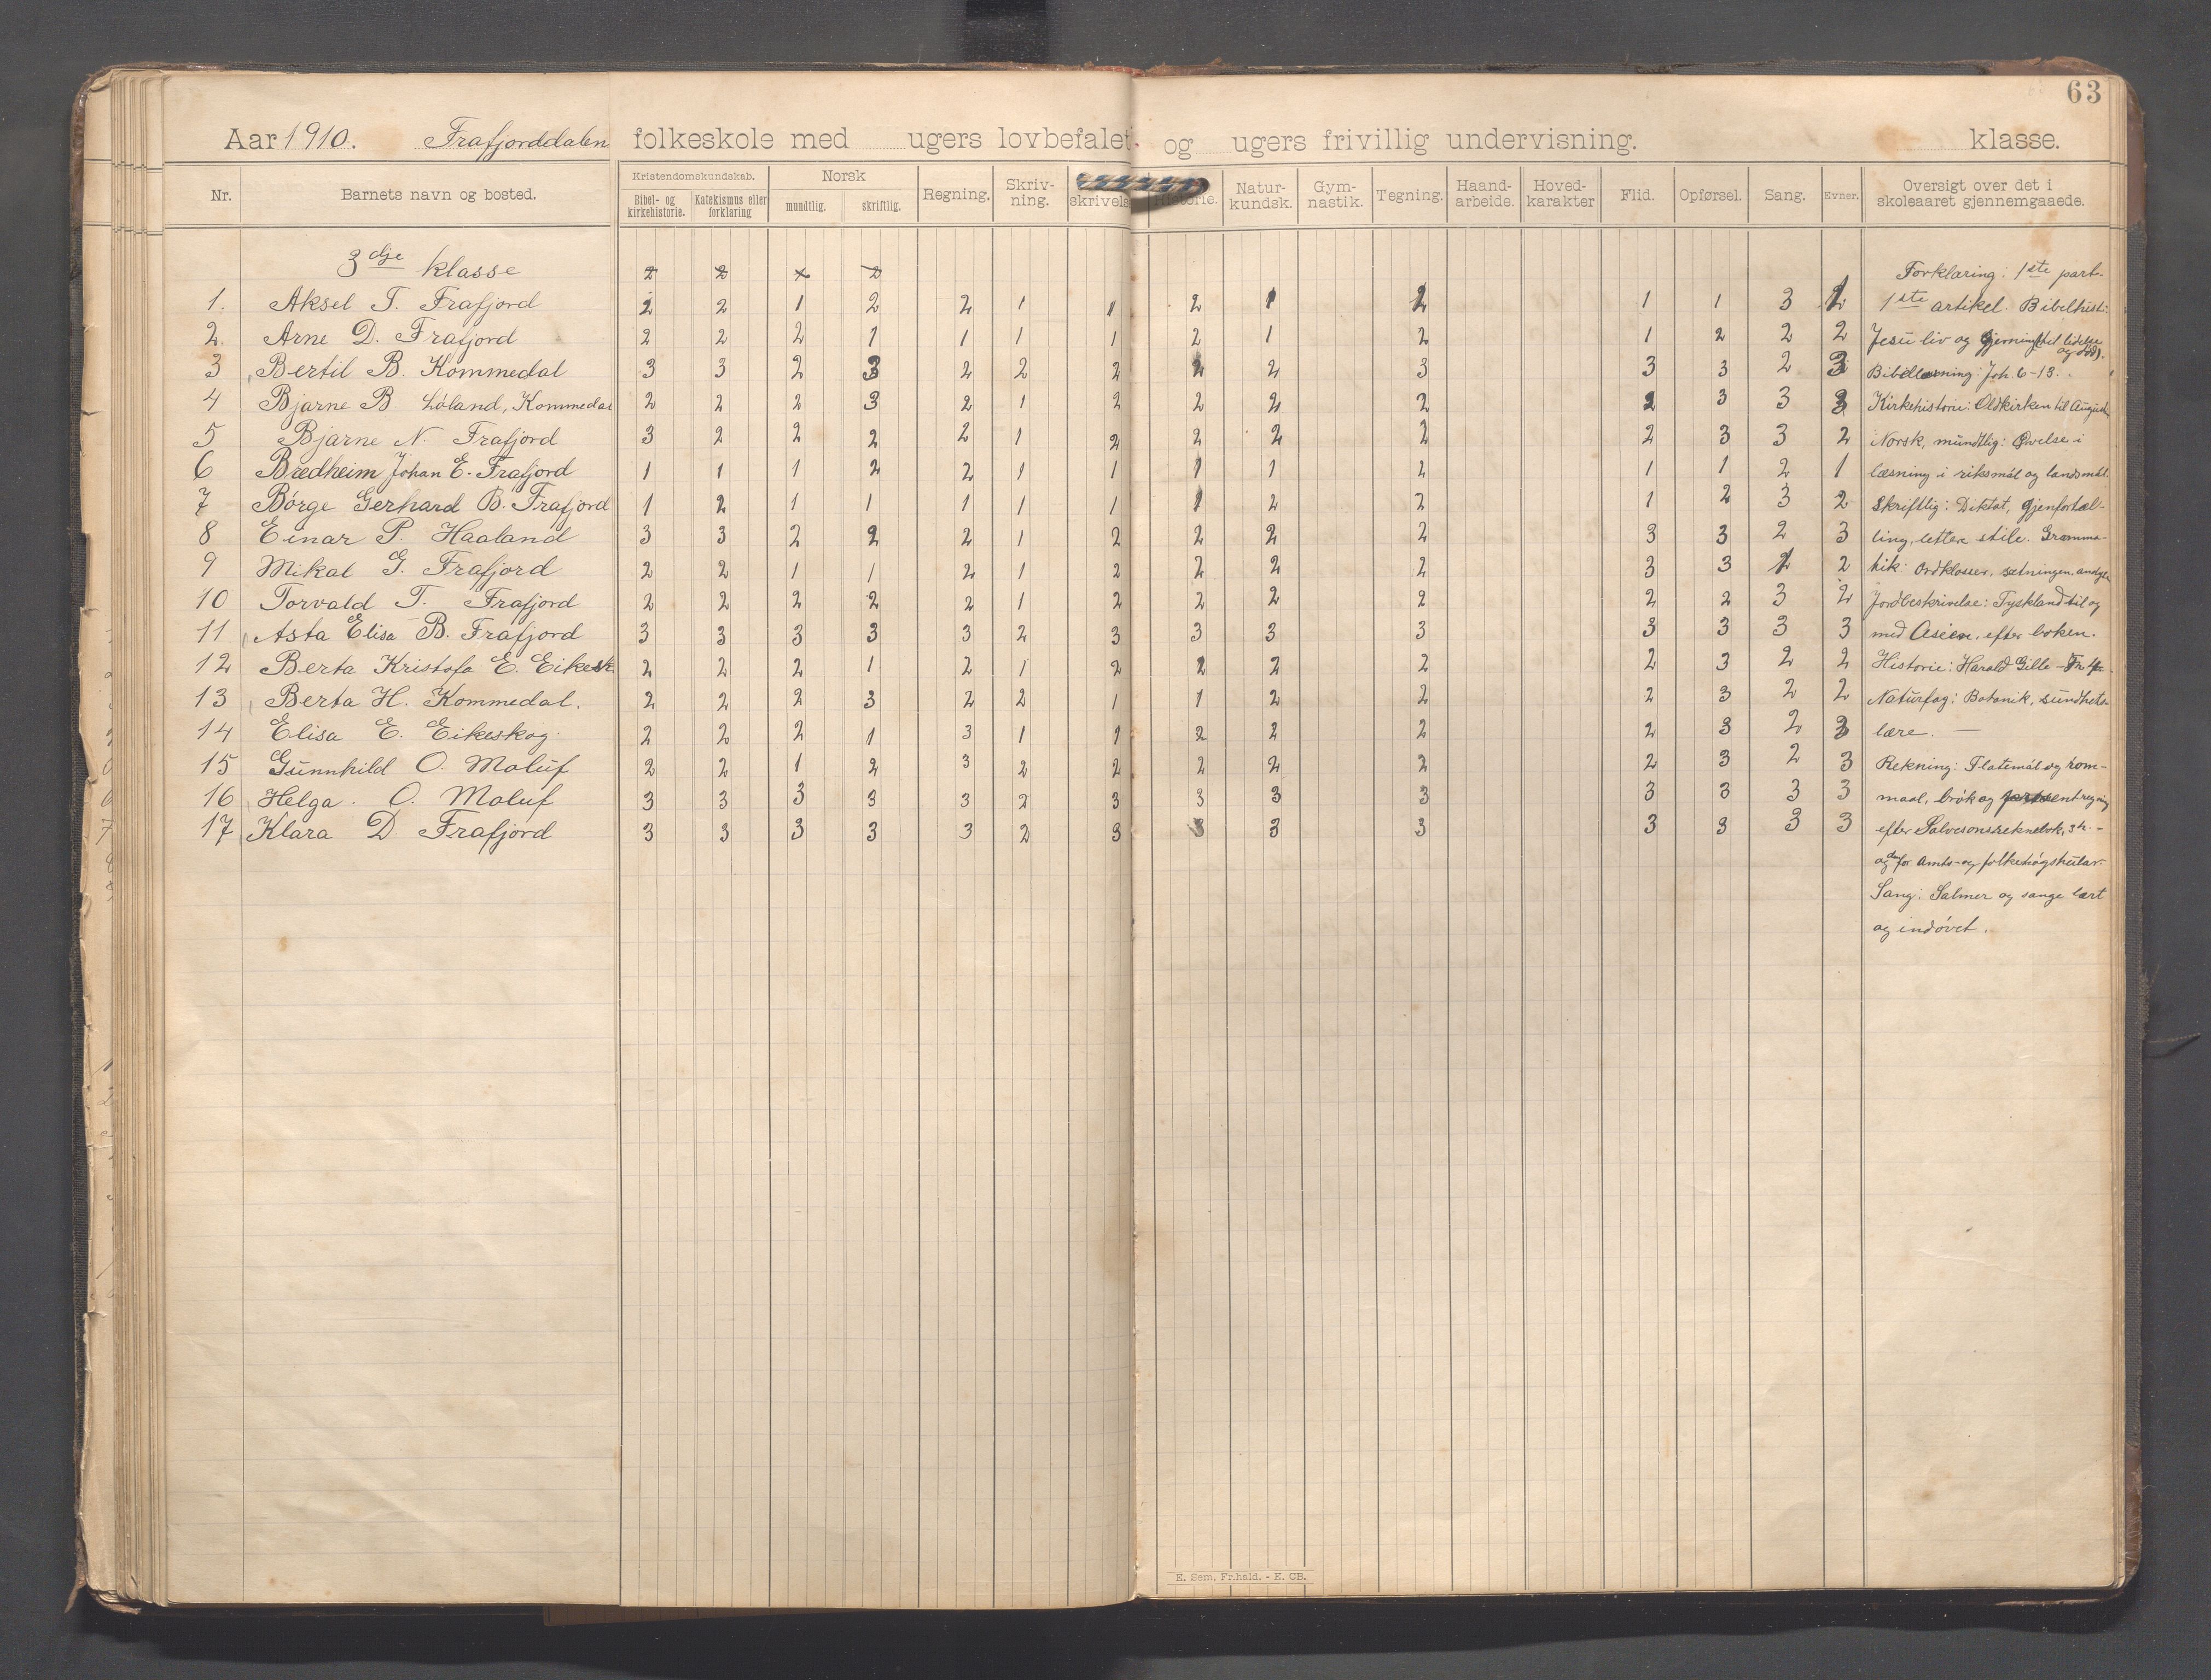 63
Aar 1910. Frafjorddalen folkeskole med ugers lovbefalet og ugers frivillig undervisning. klasse.
Nr. Barnets navn og bosted. Kristendomskundskab. Bibel- og kirkehistorie. Katekismus eller forklaring Norsk mundtlig. skriftlig. Regning. Skriv-ning. skrivels Historie. Natur-kundsk. Gym-nastik. Tegning. Haand-arbeide. Hoved-karakter Flid. Opførsel. Sang. Evner. Oversigt over det i skoleaaret gjennemgaaede.
3dje klasse Forklaring: 1ste part.
1. Aksel T. Frafjord 2 2 1 2 2 1 1 2 1 2 1 1 3 2 1ste artikel. Bibelhist:
2. Arne D. Frafjord 2 2 2 1 1 1 1 2 1 2 1 2 2 2 Jesu liv og gjerning til lidelse og død.
3 Bertil B. Kommedal 3 3 2 3 2 2 2 2 2 3 3 3 2 3 Bibellæsning: Joh. 6-13.
4 Bjarne B. Løland, Kommedal 2 2 2 3 2 1 2 2 2 2 2 3 3 3 Kirkehistorie: Oldkirken til August
5 Bjarne N. Frafjord 3 2 2 2 2 1 2 2 2 2 2 3 3 2 Norsk, mundtlig: Øvelse i
6 Bredheim Johan E. Frafjord 1 1 1 2 2 1 1 1 1 2 1 1 2 1 læsning i riksmål og landsmål.
7 Børge Gerhard B. Frafjord 1 2 1 1 1 1 1 1 2 2 1 2 3 2 Skriftlig: Diktat, gjenfortæl-
8 Einar P. Haaland 3 3 2 2 2 1 2 2 2 2 3 3 2 3 ling, lettere stile. Gramma-
9 Mikal G. Frafjord 2 2 1 1 2 1 2 2 2 2 3 3 1 2 tik: Ordklasser, sætningen.
10 Torvald T. Frafjord 2 2 2 2 2 1 2 2 2 2 2 2 3 2 Jordbeskrivelse: Tyskland til og
11 Asta Elisa B. Frafjord 3 3 3 3 3 2 3 3 3 3 3 3 3 3 med Asien, efter boken.
12 Berta Kristofa E. Eikesk 2 2 2 1 2 1 2 2 2 2 2 3 2 2 Historie: Harald Gille - Fr. 4
13 Berta H. Kommedal. 2 2 2 3 2 2 1 1 2 2 2 3 2 2 Naturfag: Botanik, sundheds-
14 Elisa E. Eikeskog. 2 2 2 1 3 1 1 2 2 2 2 3 2 3 lære. —
15 Gunnhild O. Maluf 2 2 1 2 3 2 2 2 2 2 2 3 2 3 Rekning: Flatemål og rom-
16 Helga. O. Maluf 3 3 3 3 3 2 3 3 3 3 3 3 3 3 maal, brøk og procentregning
17 Klara D Frafjord 3 3 3 3 3 2 3 3 3 3 3 3 3 3 efter Salvesons reknebok, 3h. -
og den for Amts- og folkehøgskular.
Sang: Salmer og sange lært
og indøvet.
E. Sem, Fr.hald. - E. CB.